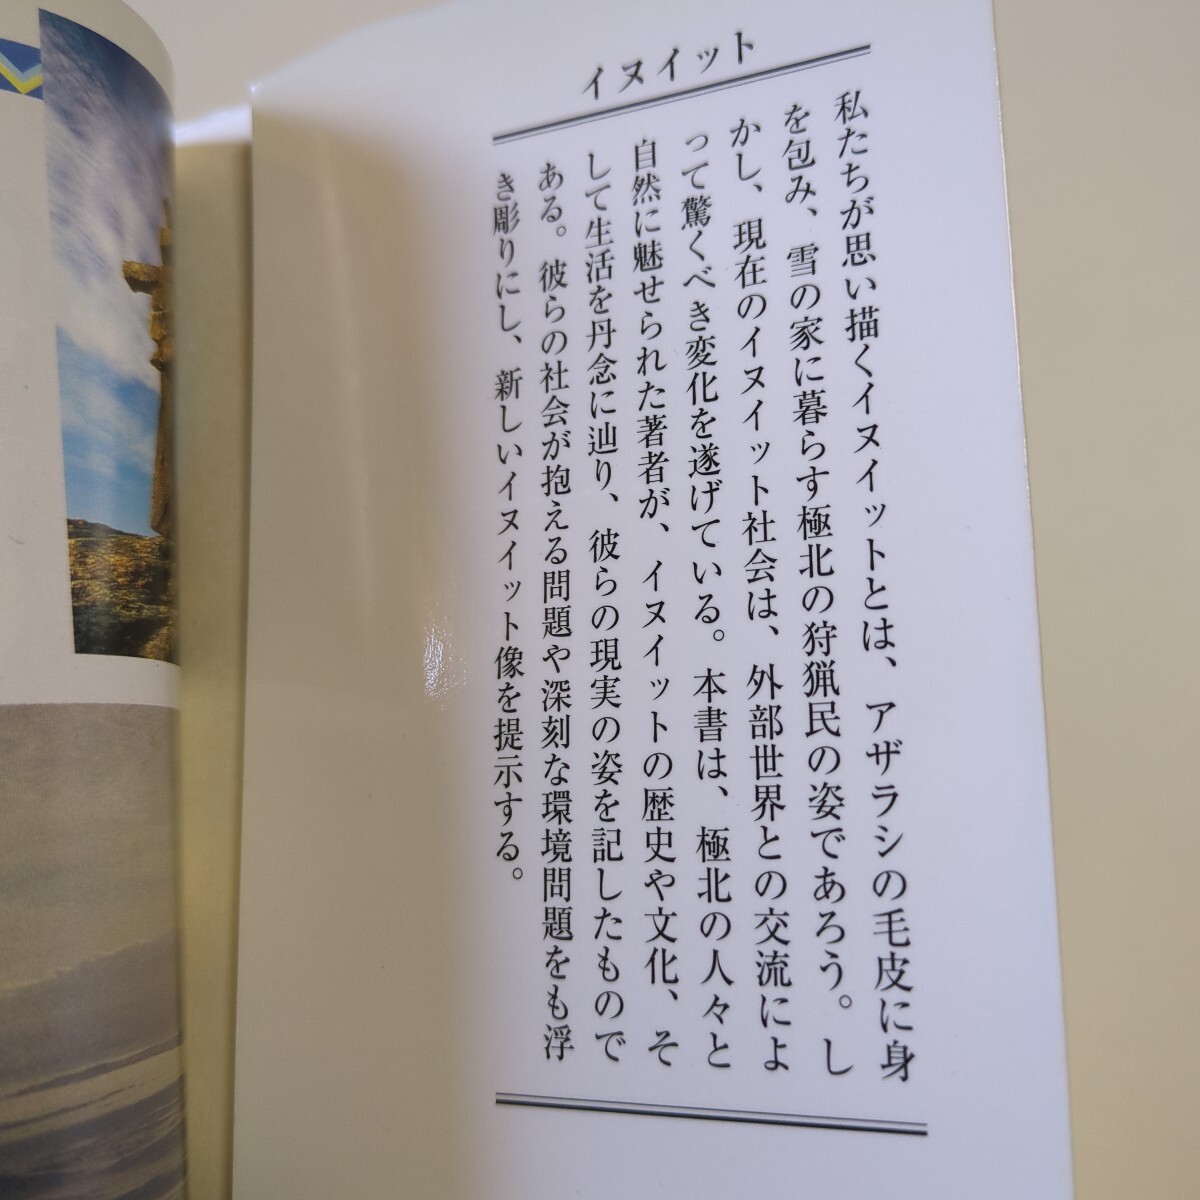 イヌイット
私たちが思い描くイヌイットとは、アザラシの毛皮に身
を包み、雪の家に暮らす極北の狩猟民の姿であろう。し
かし、現在のイヌイット社会は、外部世界との交流によ
って驚くべき変化を遂げている。本書は、極北の人々と
自然に魅せられた著者が、イヌイットの歴史や文化、そ
して生活を丹念に辿り、彼らの現実の姿を記したもので
ある。彼らの社会が抱える問題や深刻な環境問題をも浮
き彫りにし、新しいイヌイット像を提示する。